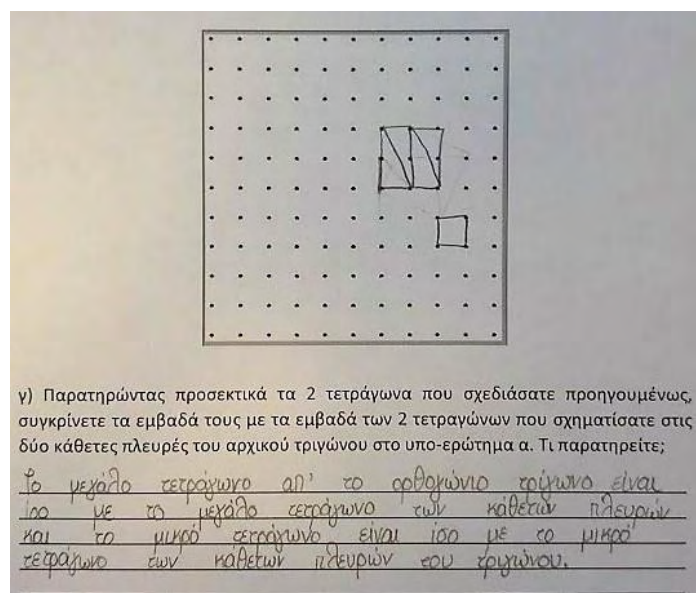 γ) Παρατηρώντας προσεκτικά τα 2 τετράγωνα που σχεδιάσατε προηγουμένως,
συγκρίνετε τα εμβαδά τους με τα εμβαδά των 2 τετραγώνων που σχηματίσατε στις
δύο κάθετες πλευρές του αρχικού τριγώνου στο υπο-ερώτημα α. Τι παρατηρείτε;
Το μεγάλο τετράγωνο απ' το ορθογώνιο τρίγωνο είναι
ίσο με το μεγάλο τετράγωνο των κάθετων πλευρών
και το μικρό τετράγωνο είναι ίσο με το μικρό
τετράγωνο των κάθετων πλευρών του τριγώνου.